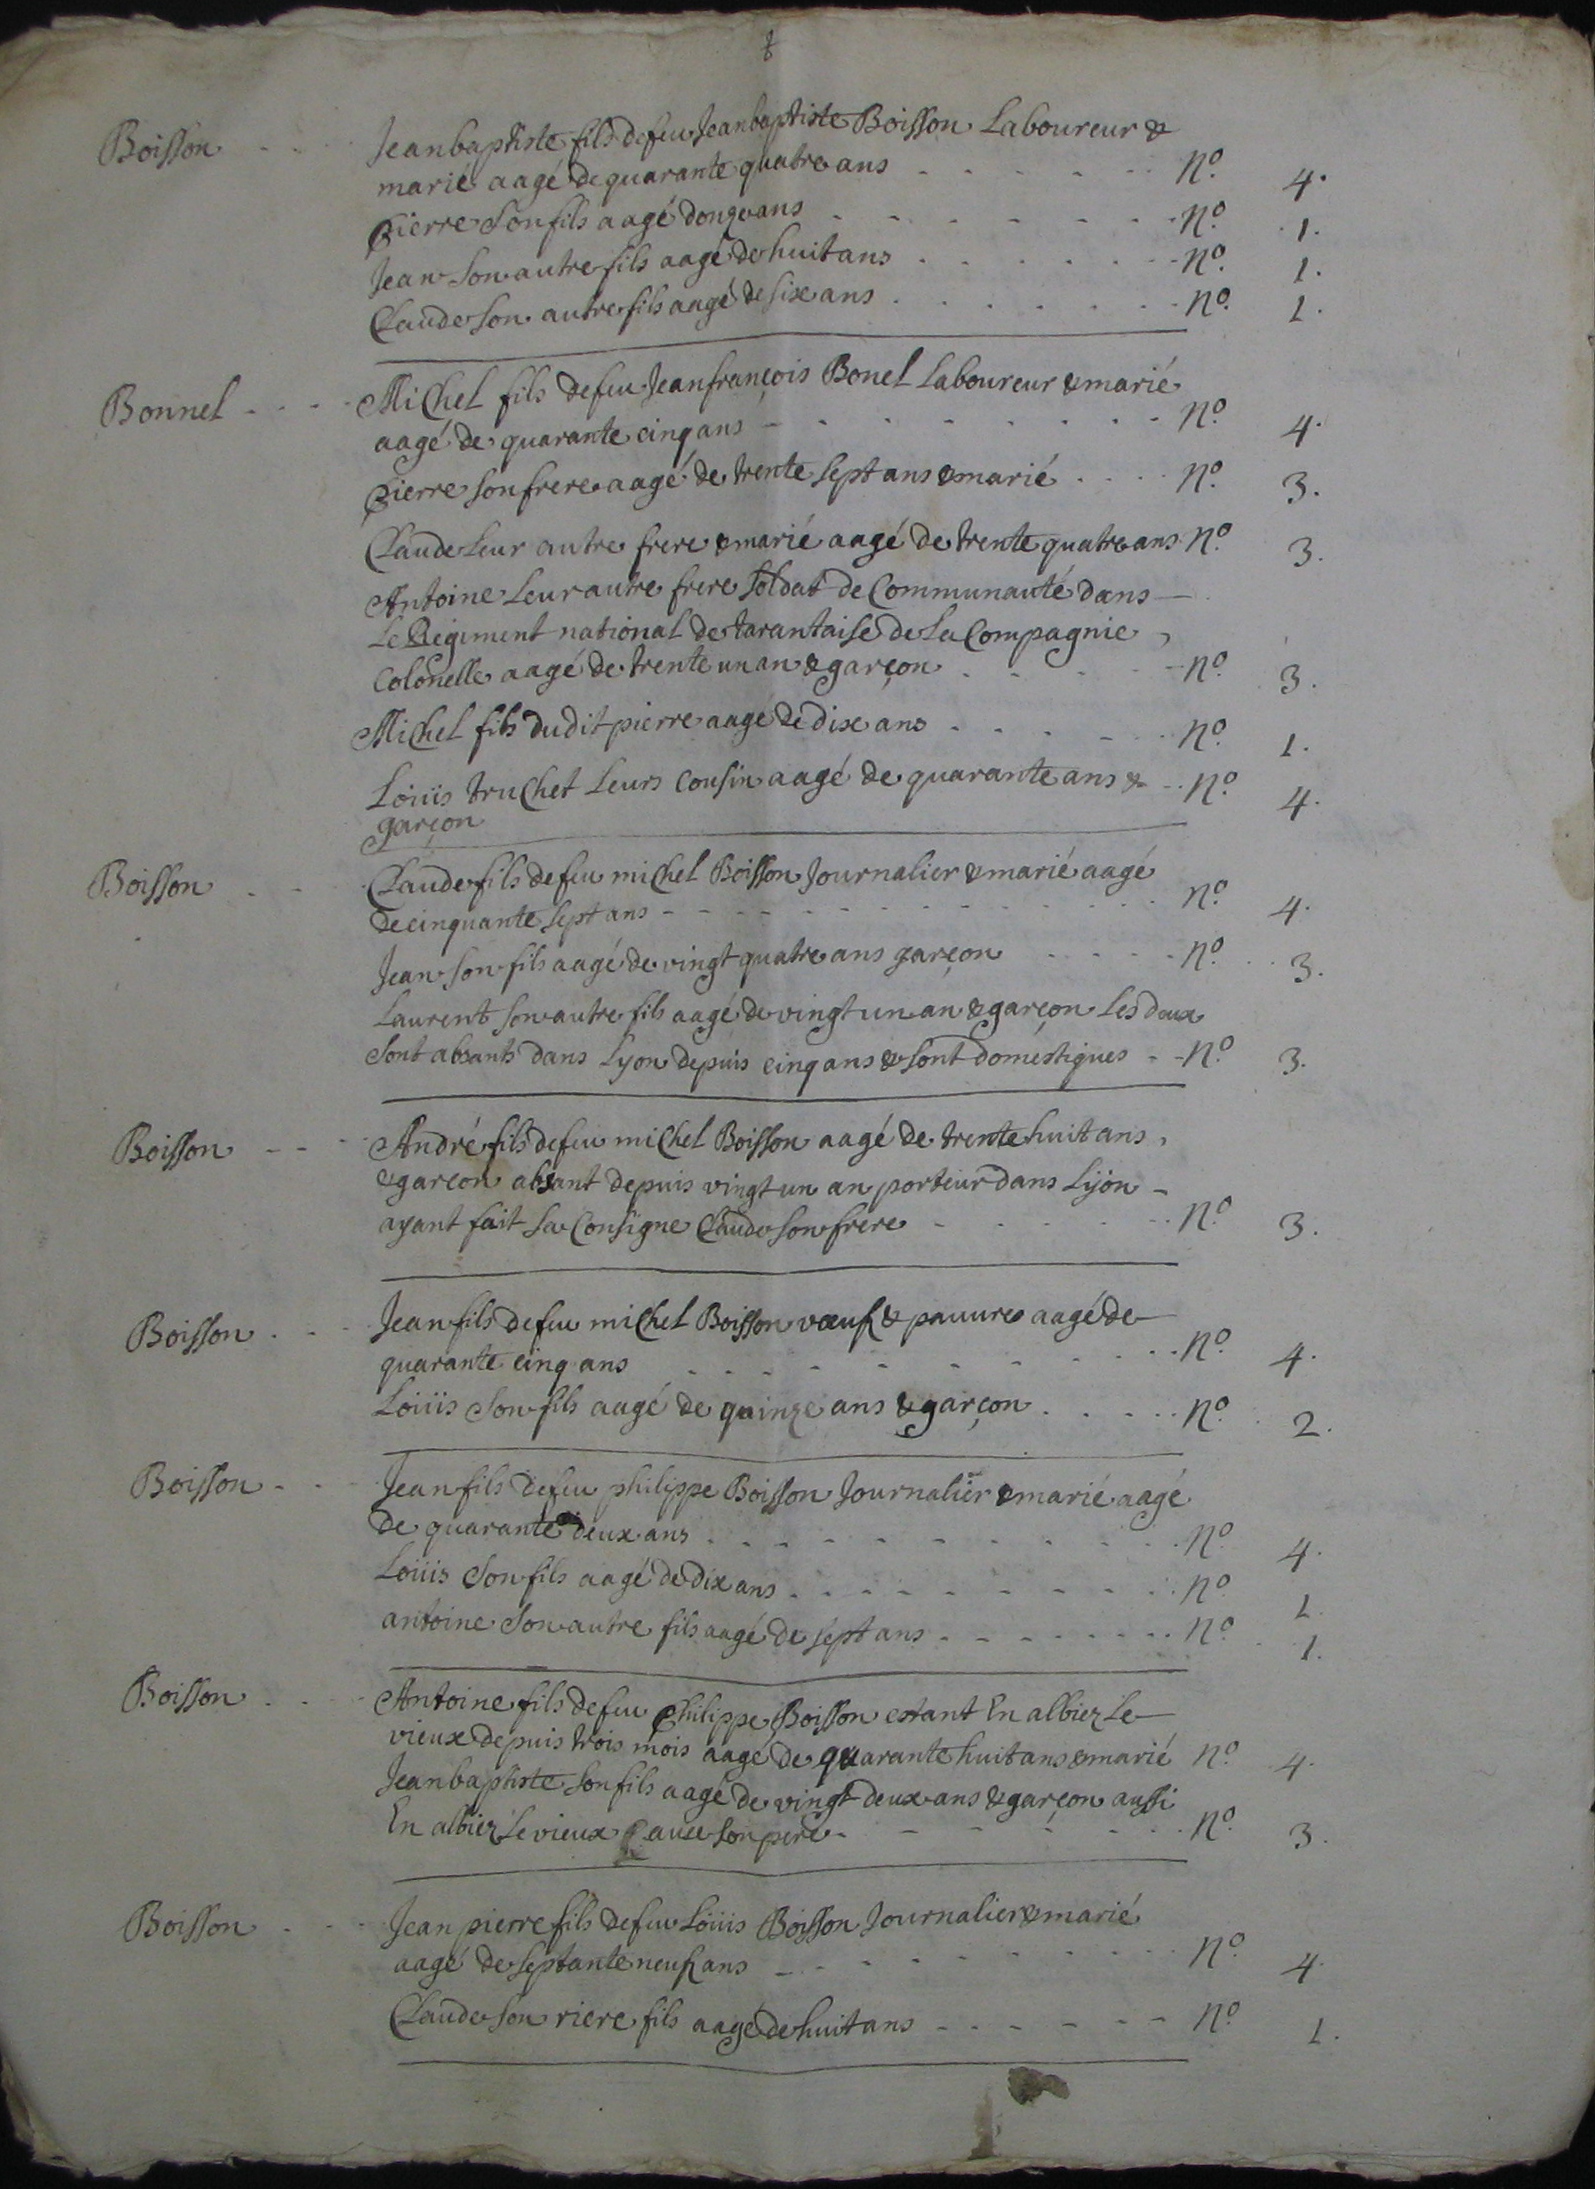 Boisson - - Jeanbaptiste fils de feu Jeanbaptiste Boisson Laboureur &
marié aagé de quarante quatre ans - - - - - - n.o 4.
Pierre son fils aagé d'onze ans - - - - - - n.o 1.
Jean son autre fils aagé de huit ans - - - - - - n.o 1.
Claude son autre fils aagé de six ans - - - - - - n.o 1.
Bonnel - - - Michel fils de feu Jeanfrançois Bonel Laboureur & marié
aagé de quarante cinq ans - - - - - - n.o 4.
Pierre son frere aagé de trente sept ans & marié - - - n.o 3.
Claude leur autre frere & marié aagé de trente quatre ans n.o 3.
Antoine leur autre frere soldat de Communauté dans
Le Regiment national de tarantaise de la Compagnie
Colonelle aagé de trente un an & garçon - - - n.o 3.
Michel fils dudit pierre aagé de dix ans - - - - n.o 1.
Loüis truchet leurs cousin aagé de quarante ans & - n.o 4.
garçon
Boisson - - Claude fils de feu michel Boisson Journalier & marié aagé
de cinquante sept ans - - - - - - n.o 4.
Jean son fils aagé de vingt quatre ans garçon - - - - n.o 3.
Laurent son autre fils aagé de vingt un an & garçon les deux
sont absants dans Lyon depuis cinq ans & sont domestiques - - n.o 3.
Boisson - - - André fils de feu michel Boisson aagé de trente huit ans,
& garçon absant depuis vingt un an porteur dans Lyon -
ayant fait la Consigne Claude son frere - - - - n.o 3.
Boisson - - - Jean fils de feu michel Boisson vœuf & pauure aagé de
quarante cinq ans - - - - - - n.o 4.
Loüis son fils aagé de quinze ans & garçon - - - - n.o 2.
Boisson - - Jean fils de feu philippe Boisson Journalier & marié aagé
de quarante deux ans - - - - - - n.o 4.
Loüis son fils aagé de dix ans - - - - - - n.o 1.
antoine son autre fils aagé de sept ans - - - - - - n.o 1.
Boisson - - Antoine fils de feu Philippe Boisson estant En albiez Le
vieux depuis trois mois aagé de quarante huit ans & marié n.o 4.
Jeanbaptiste son fils aagé de vingt deux ans & garçon aussi
En albiez Le vieux auec son pere - - - - - - n.o 3.
Boisson - - - Jean pierre fils de feu Loüis Boisson Journalier & marié
aagé de septante neuf ans - - - - - - n.o 4.
Claude son riere fils aagé de huit ans - - - - - - n.o 1.